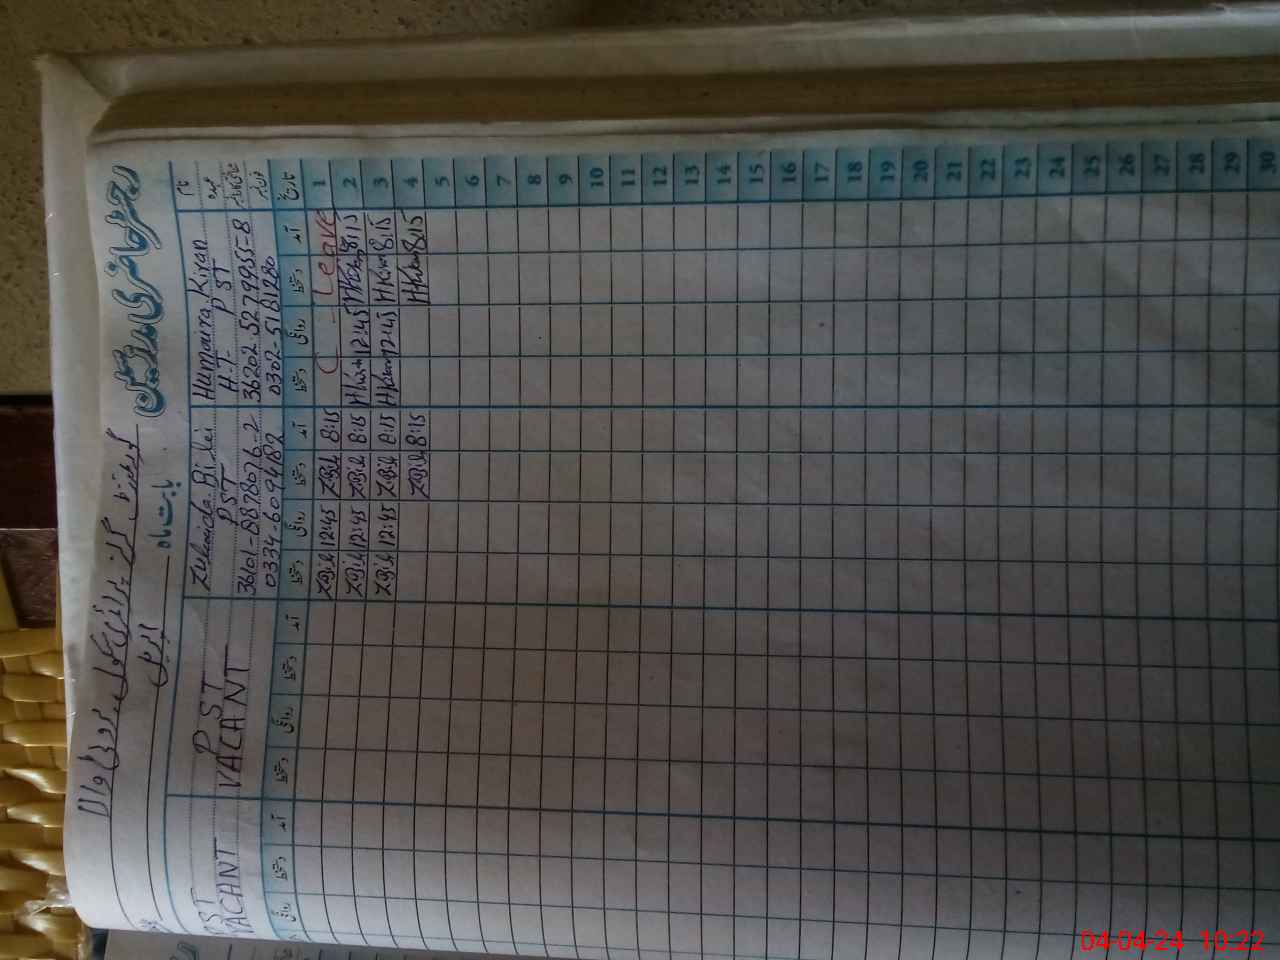 رجسٹر حاضری مدرسین
گورنمنٹ گرلز پرائمری سکول
بابت ماہ اپریل
نام
عہدہ
شناختی کارڈ
فون نمبر
Humaira Kiran
H.T. PST
36202-5279955-8
0302-5181280
Zubaida Bibi
PST
0334-6094482
PST
VACANT
PST
VACANT
تاریخ آمد دستخط روانگی دستخط آمد دستخط روانگی دستخط آمد دستخط روانگی دستخط آمد دستخط روانگی
1 C - Leave Z.Bibi 8:15 Z.Bibi 12:45
2 HKiran 8:15 HKiran 12:45 Z.Bibi 8:15 Z.Bibi 12:45
3 HKiran 8:15 HKiran 12:45 Z.Bibi 8:15 Z.Bibi 12:45
4 HKiran 8:15 Z.Bibi 8:15
5
6
7
8
9
10
11
12
13
14
15
16
17
18
19
20
21
22
23
24
25
26
27
28
29
30
04-04-24 10:22